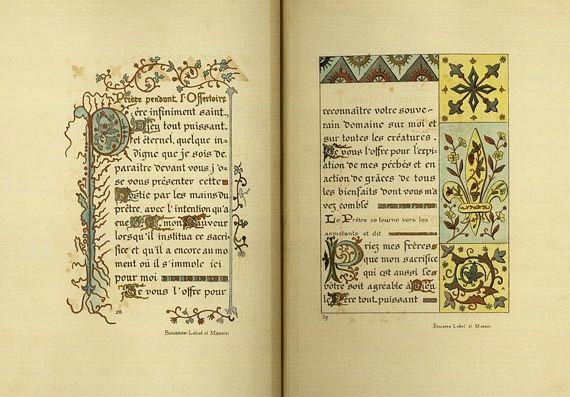 Prière pendant l'Offertoire
Père infiniment saint,
Dieu tout puissant
et éternel, quelque in-
digne que je sois de
paraître devant vous, j'o-
se vous présenter cette
Hostie par les mains du
prêtre, avec l'intention qu'a
eue mon Sauveur
lorsqu'il institua ce sacri-
fice et qu'il a encore au mo-
ment où il s'immole ici
pour moi
Je vous l'offre pour
28
Bouasse-Lebel et Massin
reconnaître votre souve-
rain domaine sur moi et
sur toutes les créatures.
Je vous l'offre pour l'expi-
ation de mes péchés et en
action de grâces de tous
les bienfaits dont vous m'a-
vez comblé
Le Prêtre se tourne vers les
assistants et dit
Priez mes frères
que mon sacrifice
qui est aussi le
vôtre soit agréable à Dieu
le Père tout puissant
29
Bouasse-Lebel et Massin